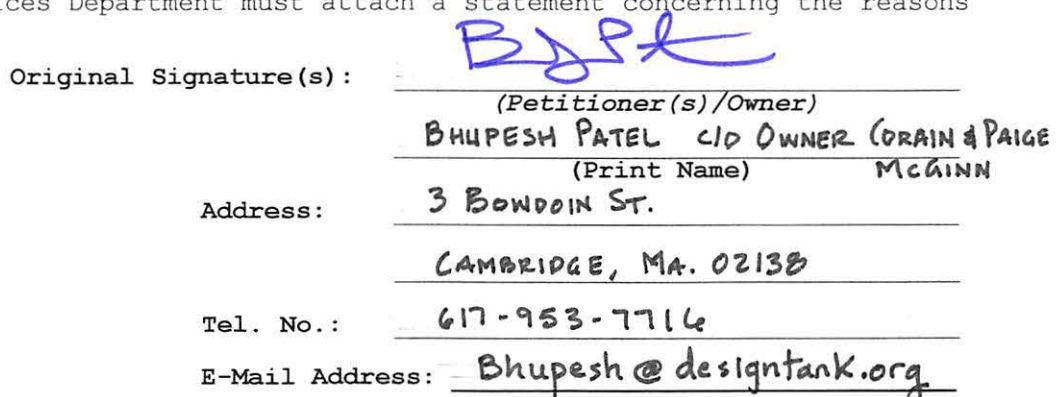 ices Department must attach a statement concerning the reasons
Original Signature(s):
(Petitioner(s)/Owner)
BHUPESH PATEL C/O OWNER CORAIN & PAIGE
(Print Name) McGINN
Address: 3 BOWDOIN ST.
CAMBRIDGE, MA. 02138
Tel. No.: 617-953-7716
E-Mail Address: Bhupesh@designtank.org